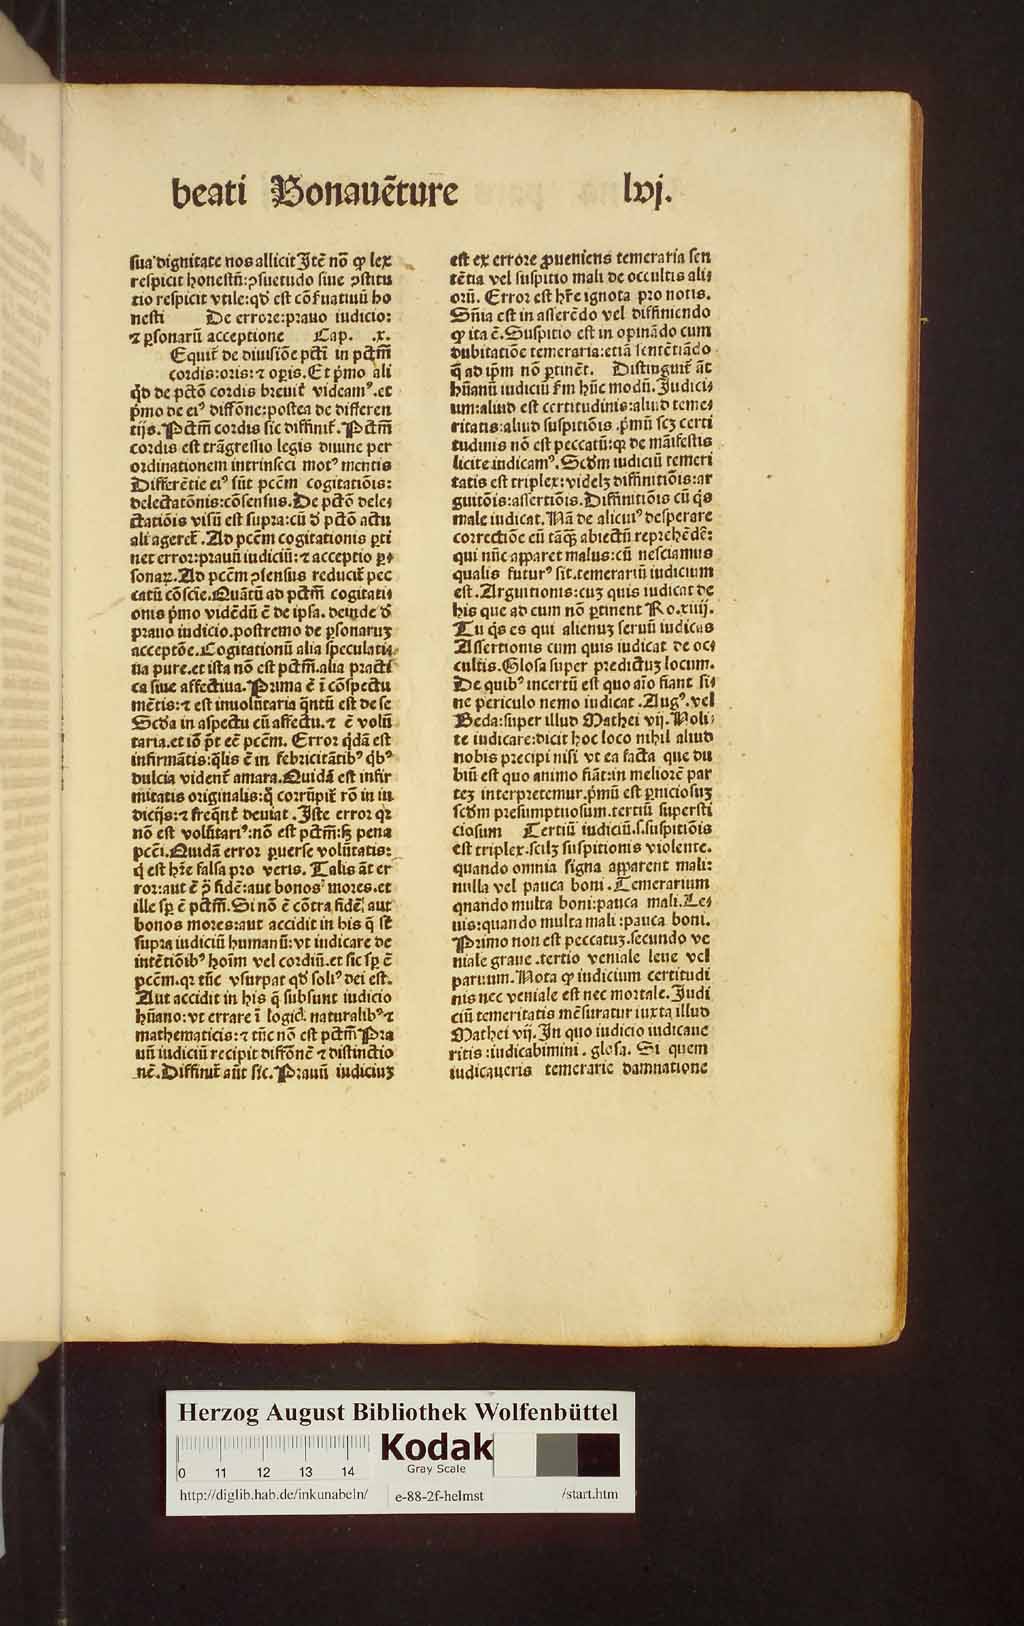 beati Bonauēture lvj.
sua dignitate nos allicit Itē nō qꝫ lex
respicit honestū: ꝯsuetudo siue ꝯstitu
tio respicit vtile: qd̄ est cōẜuatiuū ho
nesti De errore: prauo iudicio:
⁊ ꝑsonarū acceptione Cap. .x.
Sequit̄ de diuisiōe pctī in pctm̄
cordis: oris: ⁊ oꝑis. Et pͥmo ali
qͥd de pctō cordis breuit̄ videamꝰ. et
pͥmo de eiꝰ diffōne: postea de differen
tijs. Pctm̄ cordis sic diffinit̄. Pctm̄
cordis est trāgressio legis diuine per
ordinationem intrinseci motꝰ mentis
Differētie eiꝰ sūt pccm̄ cogitatiōis:
delectatōnis: cōsensus. De pctō dele⸗
ctatiōis visū est supra: cū d̄ pctō actu
ali ageret̄. Ad pccm̄ cogitationis ꝑti
net error: prauū iudiciū: ⁊ acceptio ꝑ⸗
sonaꝝ. Ad pccm̄ ꝯsensus reducit̄ pec
catū cōscīe. Quātū ad pctm̄ cogitati
onis pͥmo vidēdū ē de ipsa. deinde d̄
prauo iudicio. postremo de ꝑsonaruꝫ
acceptōe. Cogitationū alia speculati⸗
ua pure. et ista nō est pctm̄. alia practi
ca siue affectiua. Prima ē ī cōspectu
mētis: ⁊ est inuolūtaria q̄ntū est de se
Scd̄a in aspectu cū affectu. ⁊ ē volū
taria. et iō pt̄ eē pccm̄. Error qͥdā est
infirmātis: qͣlis ē in febricitātibꝰ qͥbꝰ
dulcia vident̄ amara. Quidā est infir
mitatis originalis: q̄ corrūpit̄ rō in iu
dicijs: ⁊ freq̄nt̄ deuiat. Iste error qꝛ
nō est volūtariꝰ: nō est pctm̄: sꝫ pena
pccī. Quidā error ꝑuerse volūtatis:
q̄ est hr̄e falsa pro veris. Talis āt er
ror: aut ē ꝯͣ fidē: aut bonos mores. et
ille sꝑ ē pctm̄. Si nō ē cōtra fidē aut
bonos mores: aut accidit in his q̄ sūt
supra iudiciū humanū: vt iudicare de
intētiōibꝰ hoīm vel cordiū. et sic sꝑ ē
pccm̄. qꝛ tūc vsurpat qd̄ soliꝰ dei est.
Aut accidit in his q̄ subsunt iudicio
hūano: vt errare ī logicꝭ naturalibꝰ ⁊
mathematicis: ⁊ tūc nō est pctm̄ Pra
uū iudiciū recipit diffōnē ⁊ distinctio
nē. Diffinit̄ aūt sic. Prauū iudiciuꝫ
est ex errore ꝓueniens temeraria sen
tētia vel suspitio mali de occultis ali⸗
orū. Error est hr̄e ignota pro notis.
Sn̄ia est in asserēdo vel diffiniendo
qꝫ ita ē. Suspitio est in opinādo cum
dubitatiōe temeraria: etiā sententiādo
q̄ ad ip̄m nō ꝑtinēt. Distinguit̄ āt
hūanū iudiciū ẜm hūc modū. Judici⸗
um: aliud est certitudinis: aliud teme⸗
ritatis: aliud suspitiōis. pͥmū scꝫ certi
tudinis nō est peccatū: qꝛ de māifestis
licite iudicamꝰ. Scd̄m iudiciū temeri
tatis est triplex: videlꝫ diffinitiōis: ar
guitōis: assertiōis. Diffinitiōis cū qͥs
male iudicat. Nā de alicuiꝰ desperare
correctiōe eū tāqꝫ abiectū reprehēdē:
qui nūc apparet malus: cū nesciamus
qualis futurꝰ sit. temerariū iudicium
est. Arguitionis: cuꝫ quis iudicat de
his que ad eum non ꝑtinent Ro. xiiij.
Tu qͥs es qui alienuꝫ seruū iudicas
Assertionis cum quis iudicat de oc⸗
cultis. Glosa super predictuꝫ locum.
De quibꝰ incertū est quo aīo fiant si⸗
ne periculo nemo iudicat. Augꝰ. vel
Beda: super illud Mathei vij. Noli⸗
te iudicare: dicit hoc loco nihil aliud
nobis precipi nisi vt ea facta que du
biū est quo animo fiāt: in meliorē par
teꝫ interpretemur. pͥmū est ꝑniciosuꝫ
scd̄m presumptuosum. tertiū supersti
ciosum Tertiū iudiciū. s. suspitiōis
est triplex. scilꝫ suspitionis violente.
quando omnia signa apparent mali:
nulla vel pauca boni. Temerarium
quando multa boni: pauca mali. Le⸗
uis: quando multa mali: pauca boni.
Primo non est peccatuꝫ. secundo ve
niale graue. tertio veniale leue vel
paruum. Nota qꝫ iudicium certitudi
nis nec veniale est nec mortale. Judi
ciū temeritatis mēsuratur iuxta illud
Mathei vij. In quo iudicio iudicaue
ritis: iudicabimini. glosa. Si quem
iudicaueris temerarie damnatione
Herzog August Bibliothek Wolfenbüttel
Kodak
Gray Scale
0 11 12 13 14
http://diglib.hab.de/inkunabeln/ e-88-2f-helmst /start.htm